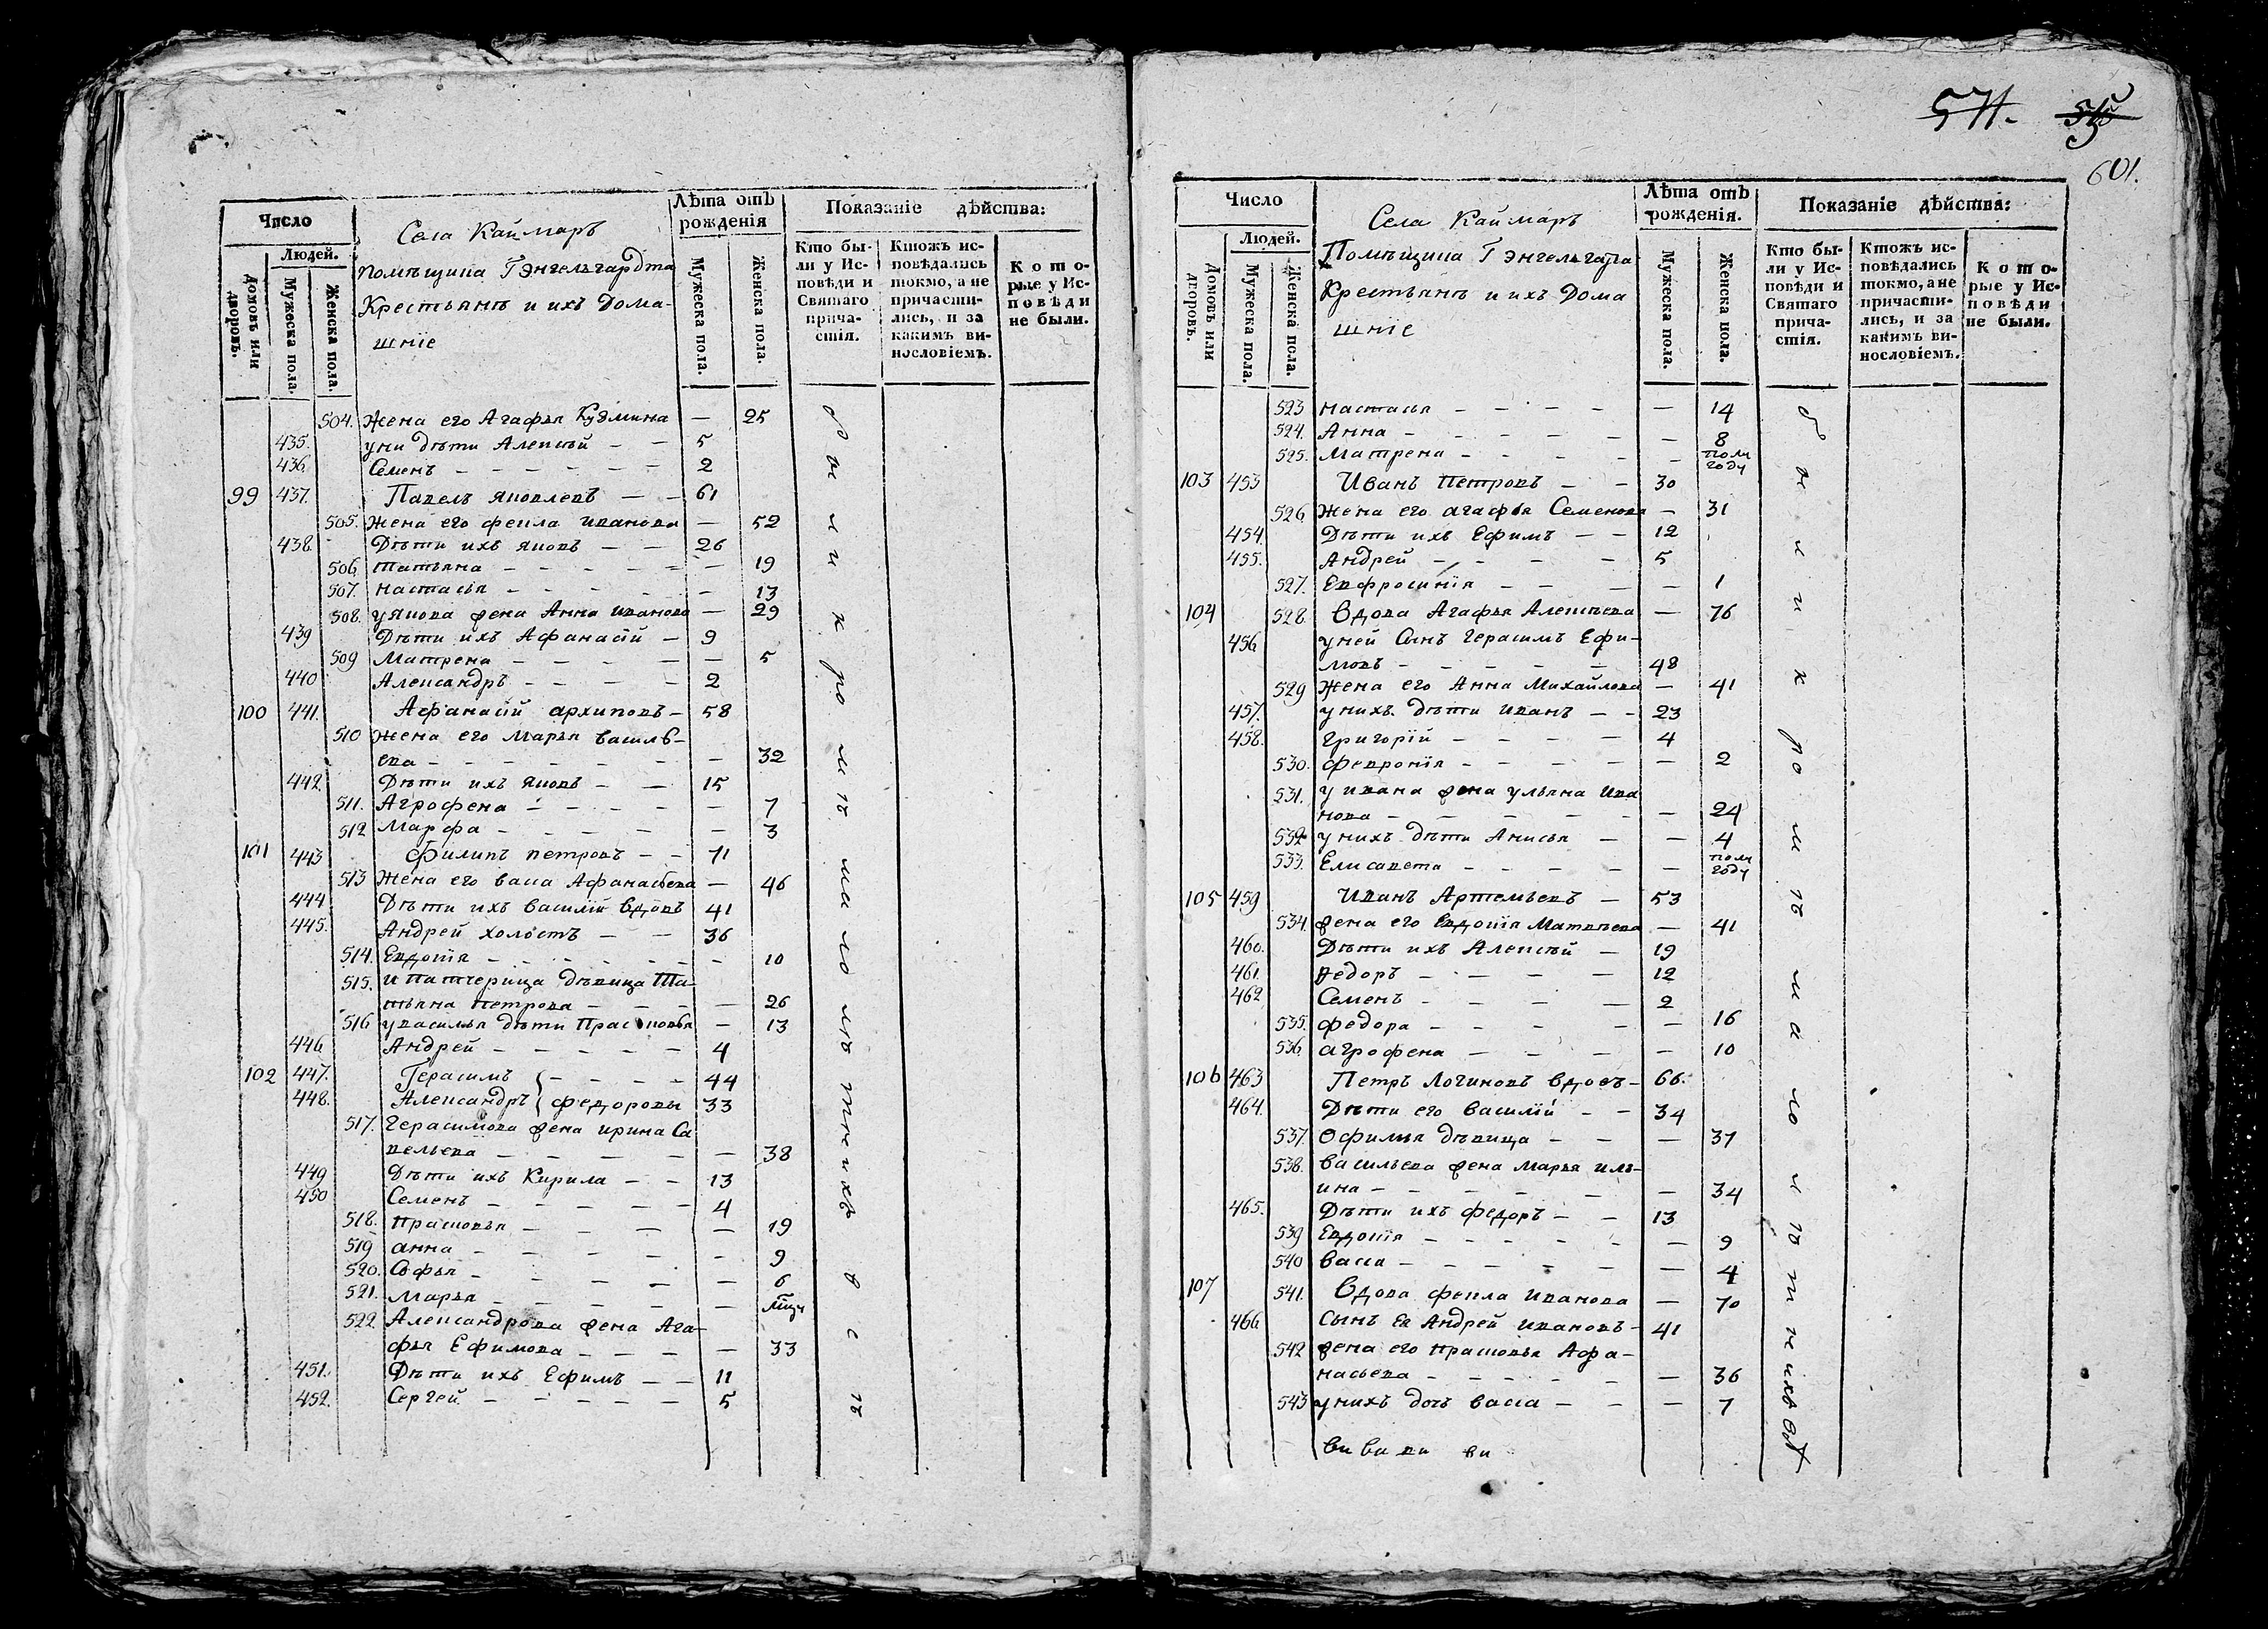 Число
Людей.
Домовъ или дворовъ.
Мужеска пола.
Женска пола.
Села Каймаръ
помѣщика Гэнгельгардта
Крестьянъ и ихъ Дома-
шніе
Лѣта отъ рожденія
Мужеска пола.
Женска пола.
Показаніе дѣйства:
Кто бы-
ли у Ис-
повѣди и
Святаго
прича-
стія.
Ктожъ ис-
повѣдались
токмо, а не
причасти-
лись, и за
какимъ ви-
нословіемъ.
Кото-
рые у Ис-
повѣди
не были.
504. Жена его Агафья Кузмина — 25
435. у ни дѣти Алексѣй — — 5
436. Семенъ — — — — — — 2
99 437. Павелъ яковлевъ — — 61
505. Жена его фекла иванова — 52
438. Дѣти ихъ яковъ — — 26
506. татьяна — — — — — — 19
507. настасья — — — — — — 13
508. у якова жена Анна иванова — 29
439 Дѣти ихъ Афанасій — 9
509 Матрена — — — — — — 5
440 Александръ — — — — 2
100 441. Афанасій архиповъ — 58
510 жена его марья василь-
ева — — — — — — — 32
442. Дѣти ихъ яковъ — — 15
511. Агрофена — — — — — 7
512 Марфа — — — — — — 3
101 443 филипъ петровъ — — 71
513 жена его васа Афанасьева — 46
444 Дѣти ихъ василій вдовъ 41
445. Андрей холостъ — — 36
514. Евдокія — — — — — — 10
515. и патчерица дѣвица Та-
тьяна петрова — — — — 26
516 у василья дѣти Прасковья — 13
446 Андрей — — — — — 4
102 447. Герасимъ — — — — 44
448. Александръ федоровы 33
517. герасимова жена ирина Са
вельева — — — — — — 38
449 Дѣти ихъ Кирила — — 13
450 Семенъ — — — — — 4
518. прасковья — — — — 19
519 анна — — — — — — 9
520. Софья — — — — — 6
521. марья — — — — —
522 Александрова жена Ага-
фья Ефимова — — — — — 33
451. Дѣти ихъ Ефимъ — — 11
452. Сергей — — — — — 5
571.
601.
Число
Людей.
Домовъ или дворовъ.
Мужеска пола.
Женска пола.
Села Каймаръ
Помѣщика Гэнгельгарта
Крестьянъ и ихъ Дома
шніе
Лѣта отъ рожденія.
Мужеска пола.
Женска пола.
Показаніе дѣйства:
Кто бы-
ли у Ис-
повѣди и
Святаго
прича-
стія.
Ктожъ ис-
повѣдались
токмо, а не
причасти-
лись, и за
какимъ ви-
нословіемъ.
Кото-
рые у Ис-
повѣди
не были.
523 настасья — — — — — 14
524. Анна — — — — — — 8
525. Матрена — — — — — полу году
103 453 Иванъ Петровъ — — 30
526 жена его агафья Семенова — 31
454 Дѣти ихъ Ефимъ — — 12
455. Андрей — — — — 5
527. Евфросинія — — — 1
104 528. Вдова Агафья Алексѣева — 76
456 у ней Сынъ герасимъ Ефи-
мовъ — — — — — 48
529 жена его Анна Михайлова — 41
457. у нихъ дѣти иванъ — — 23
458. григорій — — — — 4
530. февронія — — — — — 2
531. у ивана жена ульяна ива
нова — — — — — — 24
532 у нихъ дѣти Анисья — — 4
533 Елисавета — — — — — — полу году
105 459 Иванъ Артемьевъ — 53
534. жена его Евдокія Матвѣева — 41
460. Дѣти ихъ Алексѣй — 19
461. федоръ — — — — 12
462 Семенъ — — — — 2
535. федора — — — — — 16
536 агрофена — — — — — 10
106 463 Петръ Логиновъ вдовъ — 66.
464. Дѣти его василій — — 34
537. Офимья дѣвица — — — 37
538. васильева жена марья иль-
ина — — — — — — 34
465. Дѣти ихъ федоръ — — 13
539 Евдокія — — — — — — 9
540 васа — — — — — — 4
107 541. Вдова фекла иванова — 70
466 сынъ ея Андрей ивановъ — 41
542 жена его прасковья Афа-
насьева — — — — — — 36
543 у нихъ дочь васса — — — 7